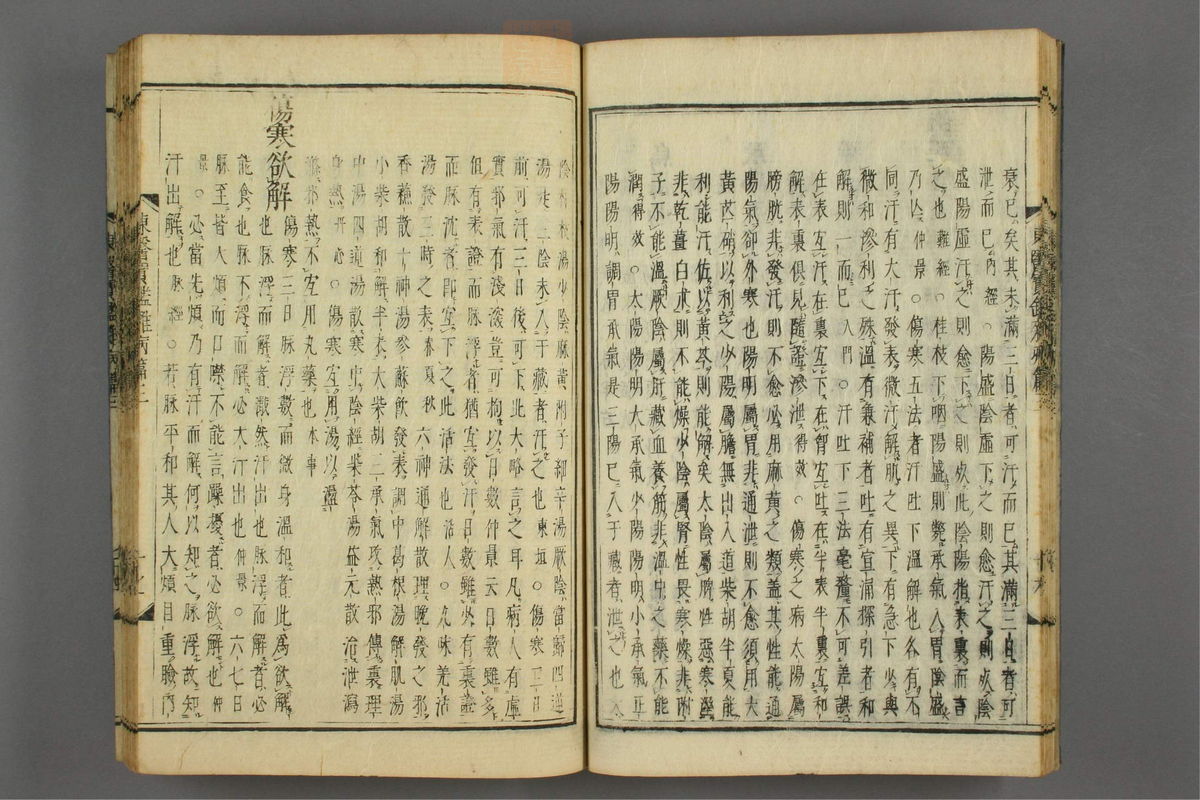 衰已矣其未滿三日者可汗而已其滿三日者可
泄而已內經○陽盛陰虛下之則愈汗之則死陰
盛陽虛汗之則愈下之則死此陰陽指表裏而言
之也難經○桂枝下咽陽盛則斃承氣入胃陰盛
乃亾仲景○傷寒五法者汗吐下溫解也各有不
同汗有大汗發表微汗解肌之異下有急下少與
微和滲利之殊溫有兼補者吐有宣涌探引者和
解則一而已入門○汗吐下三法毫釐不可差誤
在表宜汗在裏宜下在胷宜吐在半表半裏宜和
解表裏俱見隨證滲泄得效○傷寒之病太陽屬
膀胱非發汗則不愈必用麻黃之類盖其性能通
陽氣卻外寒陽明屬胃非通泄則不愈須用大
黃芒硝以利之少陽屬膽無出入道柴胡半夏能
利能汗佐以黃芩則能解矣太陰屬脾性惡寒濕
非乾薑白朮則不能燥少陰屬腎性畏寒燥非附
子不能溫厥陰屬肝藏血養筋非溫中之藥不能
潤得效○太陽陽明大承氣少陽陽明小承氣正
陽陽明調胃承氣是三陽已入于藏者泄之也太
陰桂枝湯少陰麻黃附子細辛湯厥陰當歸四逆
湯是三陰未入于藏者汗之也東垣○傷寒三日
前可汗三日後可下此大略言之耳凡病人有虛
實邪氣有淺深豈可拘以日數仲景云日數雖多
但有表證而脉浮者猶宜發汗日數雖少有裏證
而脉沈者即宜下之此活法也活人○九味羌活
湯發三時之表春夏秋六神通解散理晚發之邪
香蘇散十神湯參蘇飮發表調中葛根湯解肌湯
小柴胡和解半表大柴胡三承氣攻熱邪傳裏理
中湯四逆湯散寒中陰經柴苓湯益元散治泄瀉
身熱丹心○傷寒宜用湯以盪
滌邪熱不宜用丸藥也本事
傷寒欲解傷寒三日脉浮數而微身溫和者此爲欲解
也脉浮而解者濈然汗出也脉浮而解者必
能食也脉不浮而解必大汗出也仲景○六七日
脉至皆大煩而口噤不能言躁擾者必欲解也仲
景○必當先煩乃有汗而解何以知之脉浮故知
汗出解也脉經○若脉平和其人大煩目重臉內
東醫寶鑑雜病篇二